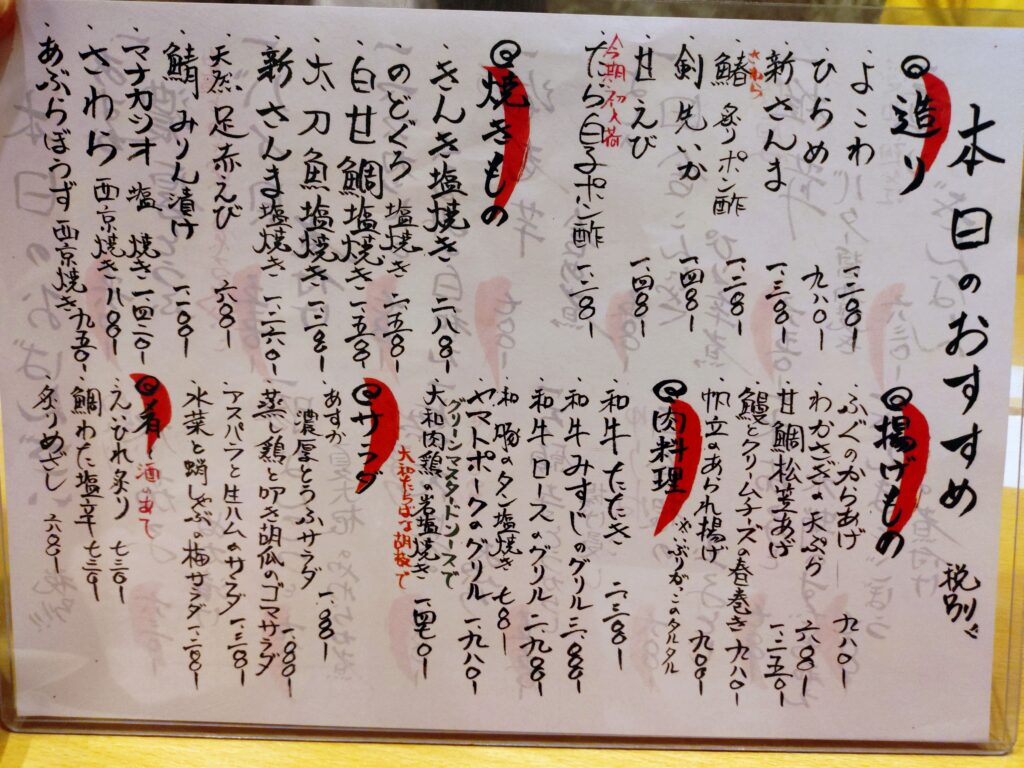 本日のおすすめ 税別
造り
・よこわ 一.二〇〇-
・ひらめ 九八〇-
・新さんま 一.三〇〇-
さわら
・鰆 炙りポン酢 一.二〇〇-
・剣先いか 一.四〇〇-
・甘えび 一.四〇〇-
今期初入荷
・たら白子ポン酢 一.二〇〇-
焼きもの
・きんき塩焼き 二.八〇〇-
・のどぐろ 塩焼き 二.五〇〇-
・白甘鯛塩焼き 一.五〇〇-
・太刀魚塩焼き 一.二〇〇-
・新さんま塩焼き 一.二六〇-
・天然足赤えび 六〇〇-
・鯖みりん漬け 一.一〇〇-
・マナカツオ 塩焼き 一.四二〇-
・さわら 西京焼き 八〇〇-
・あぶらぼうず 西京焼き 九五〇-
揚げもの
・ふぐのからあげ 九八〇-
・わかさぎの天ぷら 六〇〇-
・甘鯛松笠あげ 一.二五〇-
・鰻とクリームチーズの春巻き 九八〇-
・帆立のあられ揚げ いぶりがっこのタルタル 九〇〇-
肉料理
・和牛たたき 二.三〇〇-
・和牛みすじのグリル 三.〇〇〇-
・和牛ロースのグリル 二.九〇〇-
・和豚のタン塩焼き 七〇〇-
・ヤマトポークのグリル 一.九八〇-
グリーンマスタードソースで
・大和肉鶏の岩塩焼き 一.四七〇-
大和たちばな胡椒で
サラダ
・あすか
濃厚とうふサラダ 一.〇〇〇-
・蒸し鶏と叩き胡瓜のゴマサラダ 一.〇〇〇-
・アスパラと生ハムのサラダ 一.三〇〇-
・水菜と蛸しゃぶの梅サラダ 一.二〇〇-
肴 酒のあて
・えいひれ炙り 七三〇-
・鯛わた塩辛 七三〇-
・炙りめざし 六〇〇-